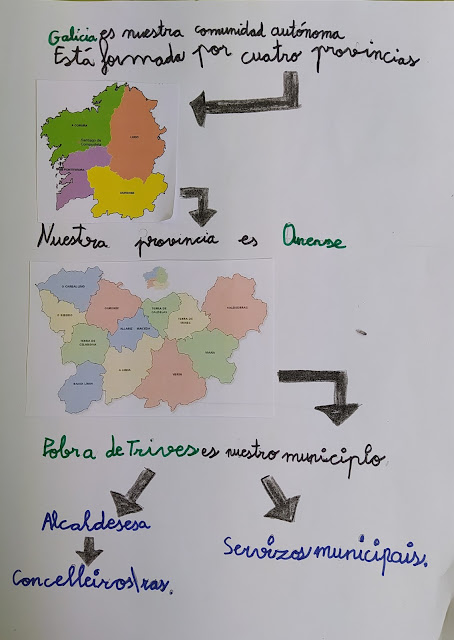 Galicia es nuestra comunidad autónoma
Está formada por cuatro provincias
A CORUÑA
LUGO
Santiago de Compostela
PONTEVEDRA
OURENSE
Nuestra provincia es Ourense
O CARBALLIÑO
VALDEORRAS
O RIBEIRO
OURENSE
TERRA DE CALDELAS
TERRA DE TRIVES
ALLARIZ - MACEDA
TERRA DE CELANOVA
VIANA
A LIMIA
VERÍN
BAIXA LIMIA
Pobra de Trives es nuestro municipio
Alcaldesesa
Servizos municipais.
Concelleiros\ras.